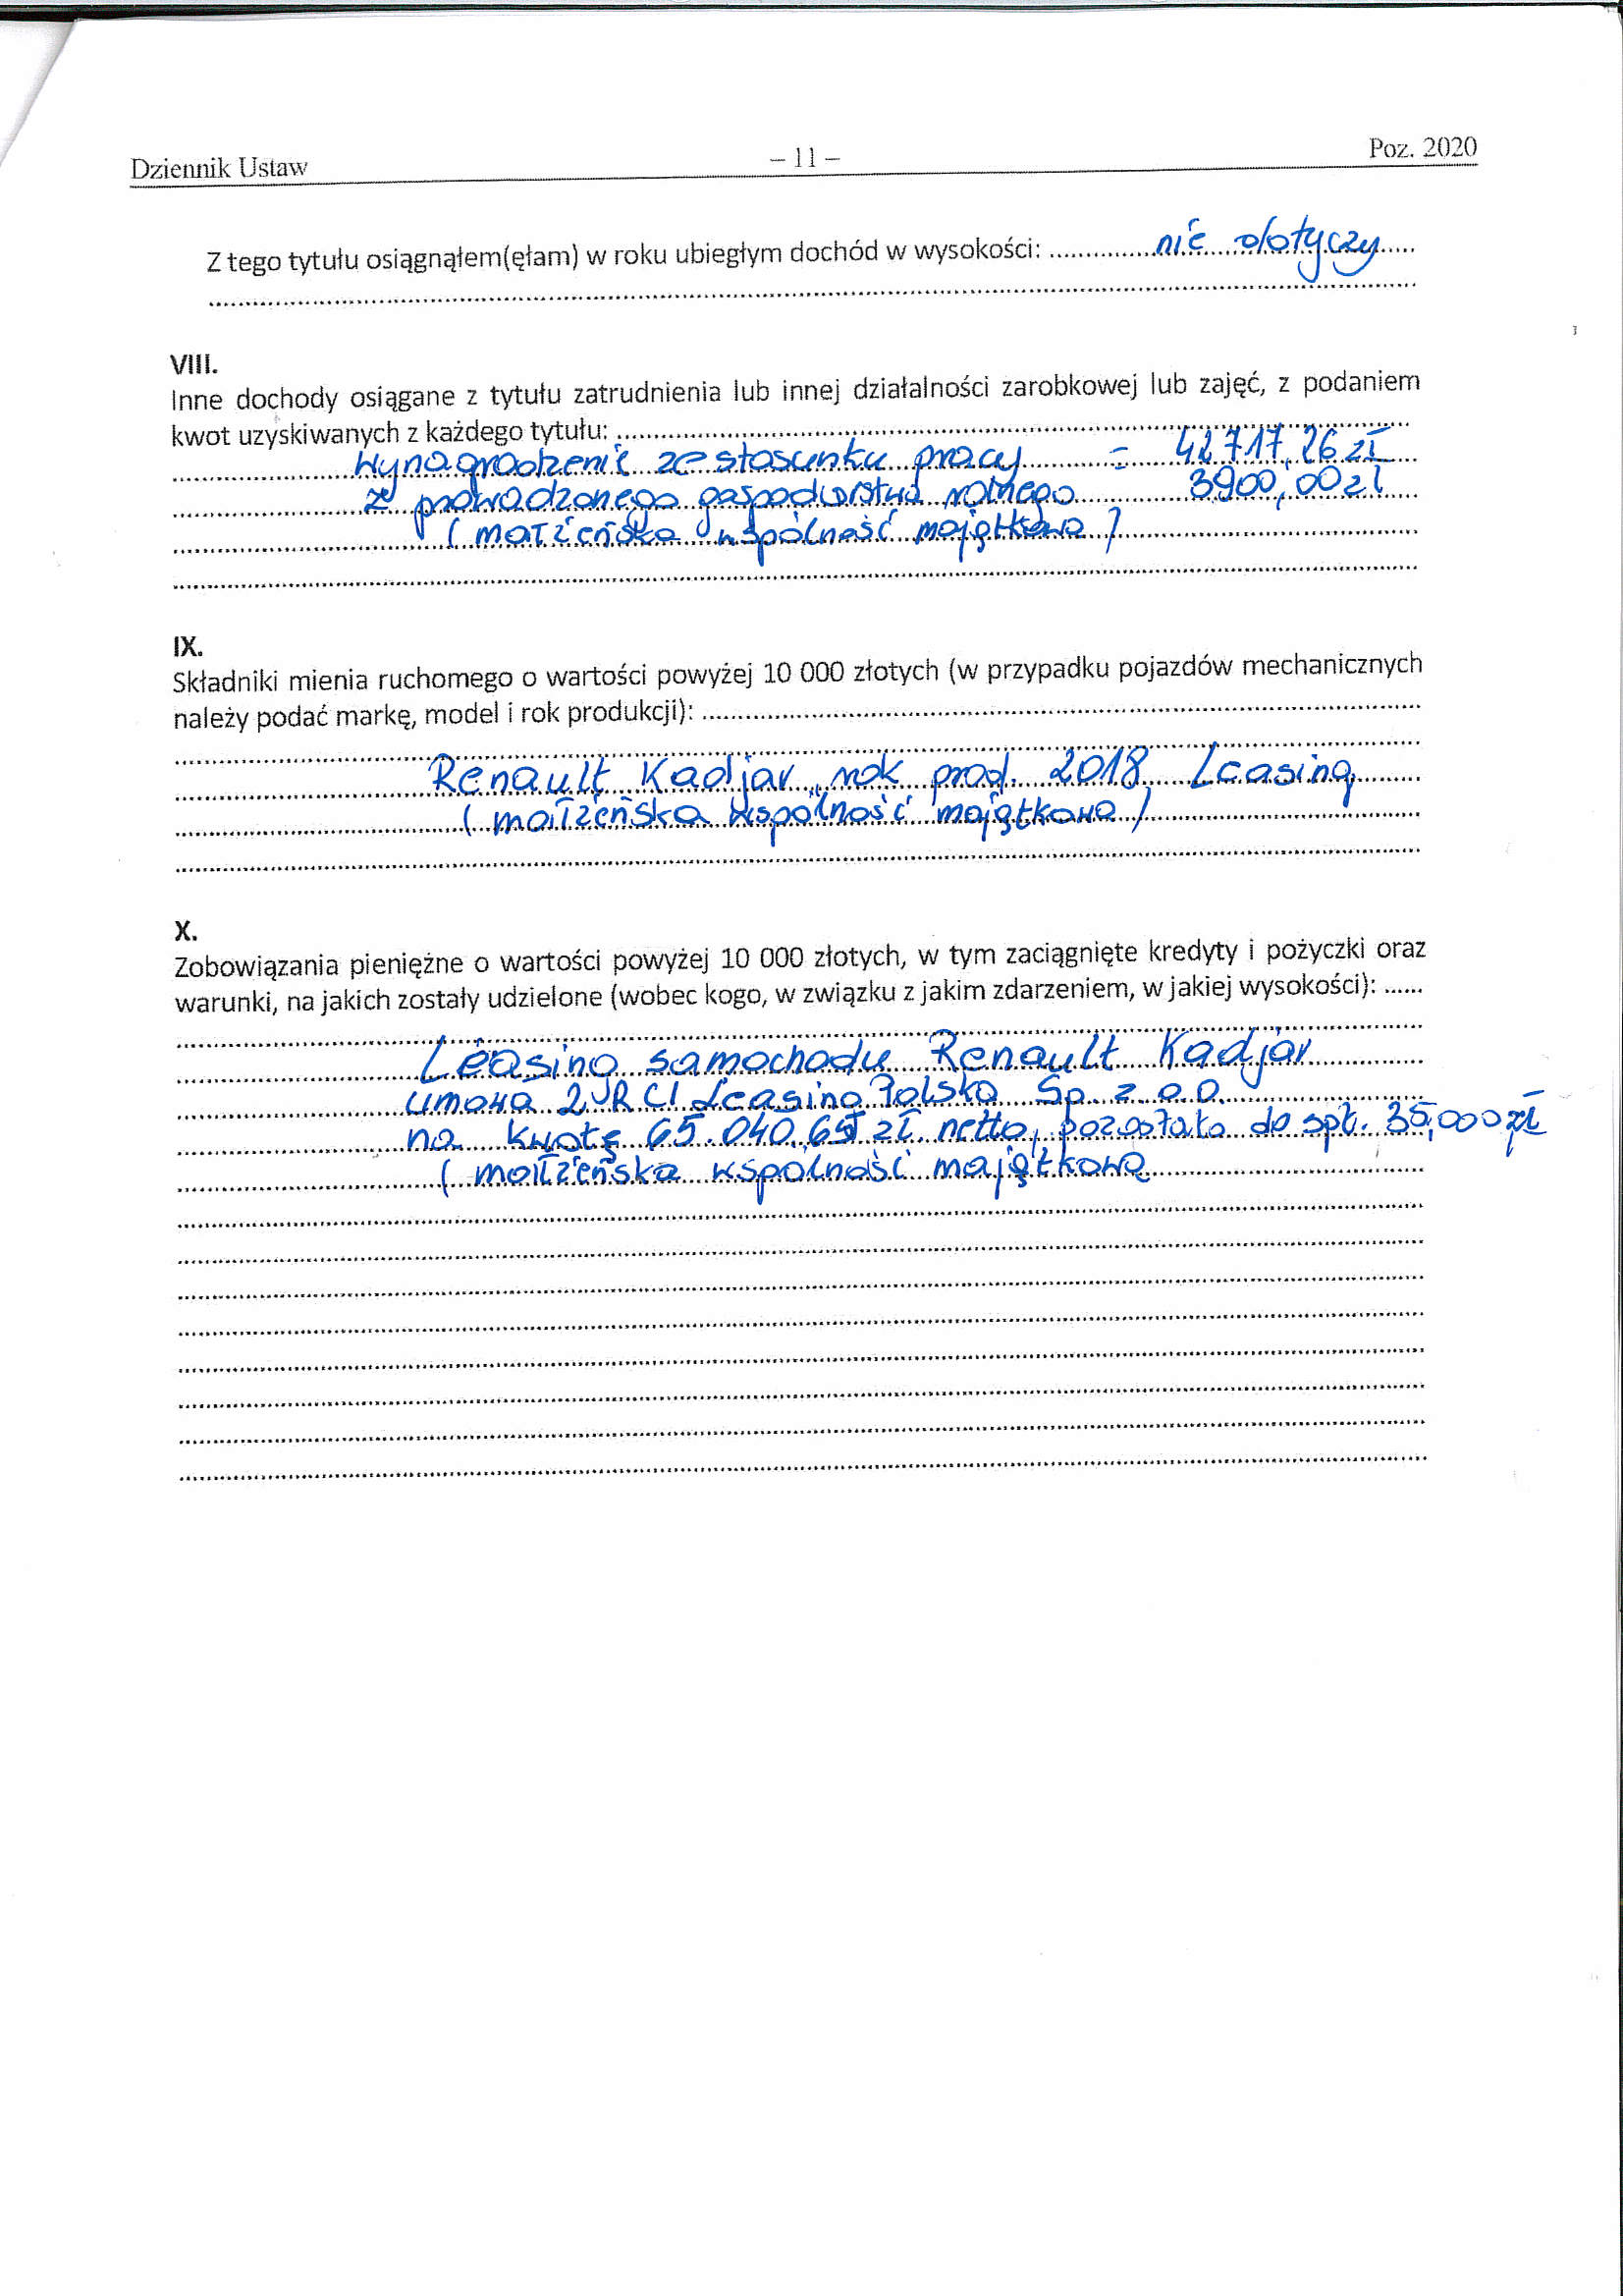 Dziennik Ustaw – 11 – Poz. 2020
Z tego tytułu osiągnąłem(ęłam) w roku ubiegłym dochód w wysokości: nie dotyczy
VIII.
Inne dochody osiągane z tytułu zatrudnienia lub innej działalności zarobkowej lub zajęć, z podaniem
kwot uzyskiwanych z każdego tytułu:
Wynagrodzenie ze stosunku pracy = 42 717,26 zł
ze prowadzonego gospodarstwa rolnego 3900,00 zł
(małżeńska wspólność majątkowa)
IX.
Składniki mienia ruchomego o wartości powyżej 10 000 złotych (w przypadku pojazdów mechanicznych
należy podać markę, model i rok produkcji):
Renault Kadjar, rok prod. 2018 Leasing
(małżeńska wspólność majątkowa)
X.
Zobowiązania pieniężne o wartości powyżej 10 000 złotych, w tym zaciągnięte kredyty i pożyczki oraz
warunki, na jakich zostały udzielone (wobec kogo, w związku z jakim zdarzeniem, w jakiej wysokości):
Leasing samochodu Renault Kadjar
umowa z RCI Leasing Polska Sp. z o.o.
na kwotę 65.040,65 zł netto, pozostało do spł. 35,000 zł
(małżeńska wspólność majątkowa